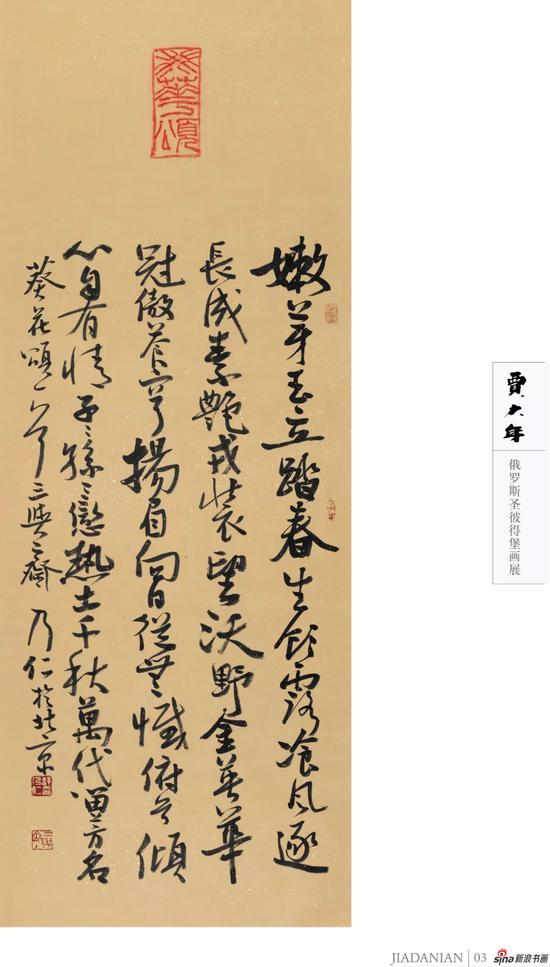 葵華頌
嫩芽玉立踏春生飲露飡風逐
長成素艷戎裝望沃野金英華
冠傲蒼穹揚眉向日從無懺俯首傾
心自有情子〻孫〻戀熱土千秋萬代留芳名
葵花頌一首 齋 乃仁於北京
賈大年
俄罗斯圣彼得堡画展
JIADANIAN | 03 sina新浪书画